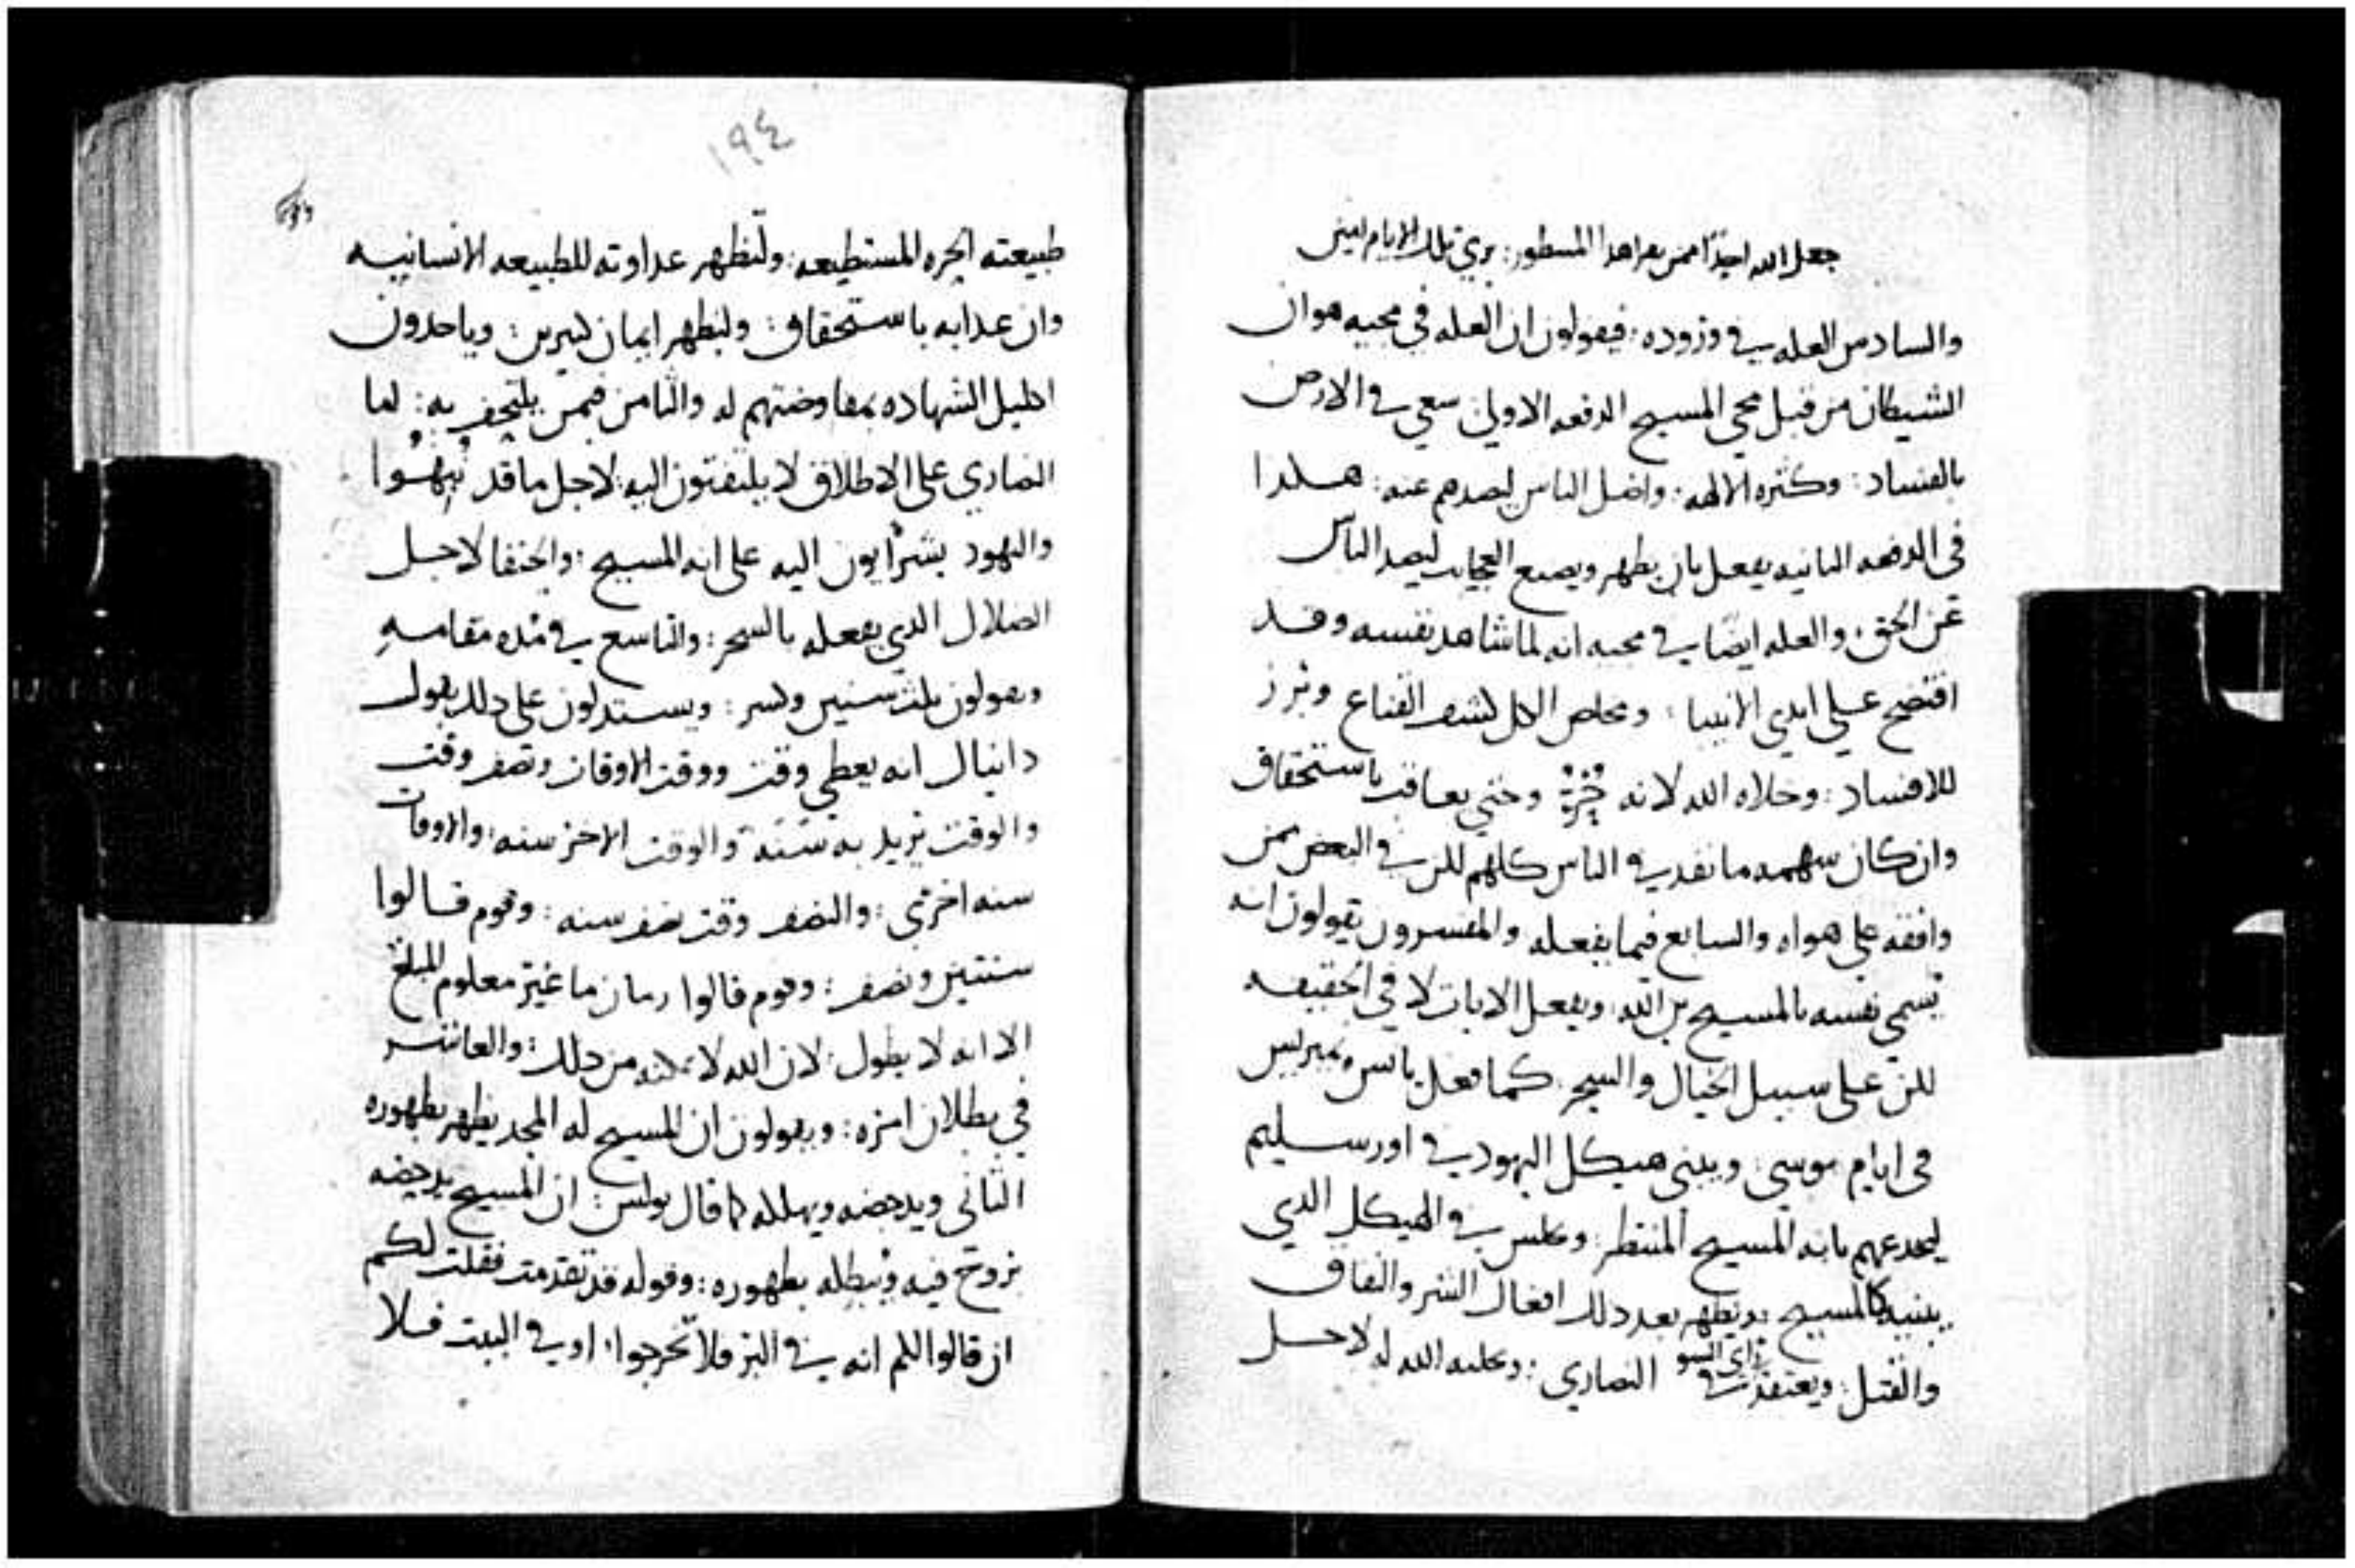 جعل الله احدًا ممن يقرا هذا المسطور: يري تلك الايام امين
والسادس العله في وروده: فيقولون ان العله في مجيه هو ان
الشيطان من قبل مجي المسيح الدفعه الاولي سعي في الارض
بالفساد: وكثره الالهه: واضل الناس ليصدهم عنه: هكدا
في الدفعه الثانيه يفعل بان يظهر ويصنع العجايب ليصد الناس
عن الحق: والعله ايضًا في مجيه انه لما شاهد نفسه وقد
افتضح علي ايدي الانبيا: ومخلص الكل كشف القناع وبرز
للافساد: وخلاه الله لانه حُرٌّ وحتي يعاقب باستحقاق
وان كان سهمه ما نفد في الناس كلهم لكن في البعض ممن
وافقه علي هواه والسابع فيما يفعله والمفسرون يقولون انه
يسمي نفسه بالمسيح بن الله: ويفعل الايات لا في الحقيقه
لكن علي سبيل الخيال والسحر: كما فعل يانس ويمبريس
في ايام موسي: ويبني هيكل اليهود في اورسليم
ليخدعهم بانه المسيح المنتظر: ويجلس في الهيكل الدي
يبنيه كالمسيح ويظهر بعد دلك افعال الشر والنفاق
والقتل: ويعتقد راي السو في النصاري: وخليه الله له لاجل
١٩٤
طبيعته الحره المستطيعه: ولتظهر عداوته للطبيعه الانسانيه
وان عدابه باستحقاق: وليظهر ايمان كثيرين: وياخدون
اكليل الشهاده بمفاوضتهم له والثامن فيمن يلتحف به: اما
النصاري علي الاطلاق لا يلتفتون اليه لاجل ما قد نُبِّهُوا
واليهود يشرأبون اليه علي انه المسيح: والحنفا لاجل
الضلال الدي يفعله بالسحر: والتاسع في مده مقامه
ويقولون ثلث سنين وكسر: ويستدلون علي دلك بقول
دانيال انه يعطي وقت ووقت الاوقات ونصف وقت
والوقت يريد به سنه والوقت الاخر سنه: والاوقات
سنه اخري: والنصف وقت نصف سنه: وقوم قالوا
سنتين ونصف: وقوم قالوا زمان ما غير معلوم المبلغ
الا انه لا يطول: لان الله لا يمكنه من دلك: والعاشر
في بطلان امره: ويقولون ان المسيح له المجد يظهر بظهوره
الثاني ويدحضه ويهلكه كما قال بولس: ان المسيح يدحضه
بروح فيه ويبطله بظهوره: وقوله قد تقدمت فقلت لكم
ان قالوا لكم انه في البر فلا تخرجوا: او في البيت فلا